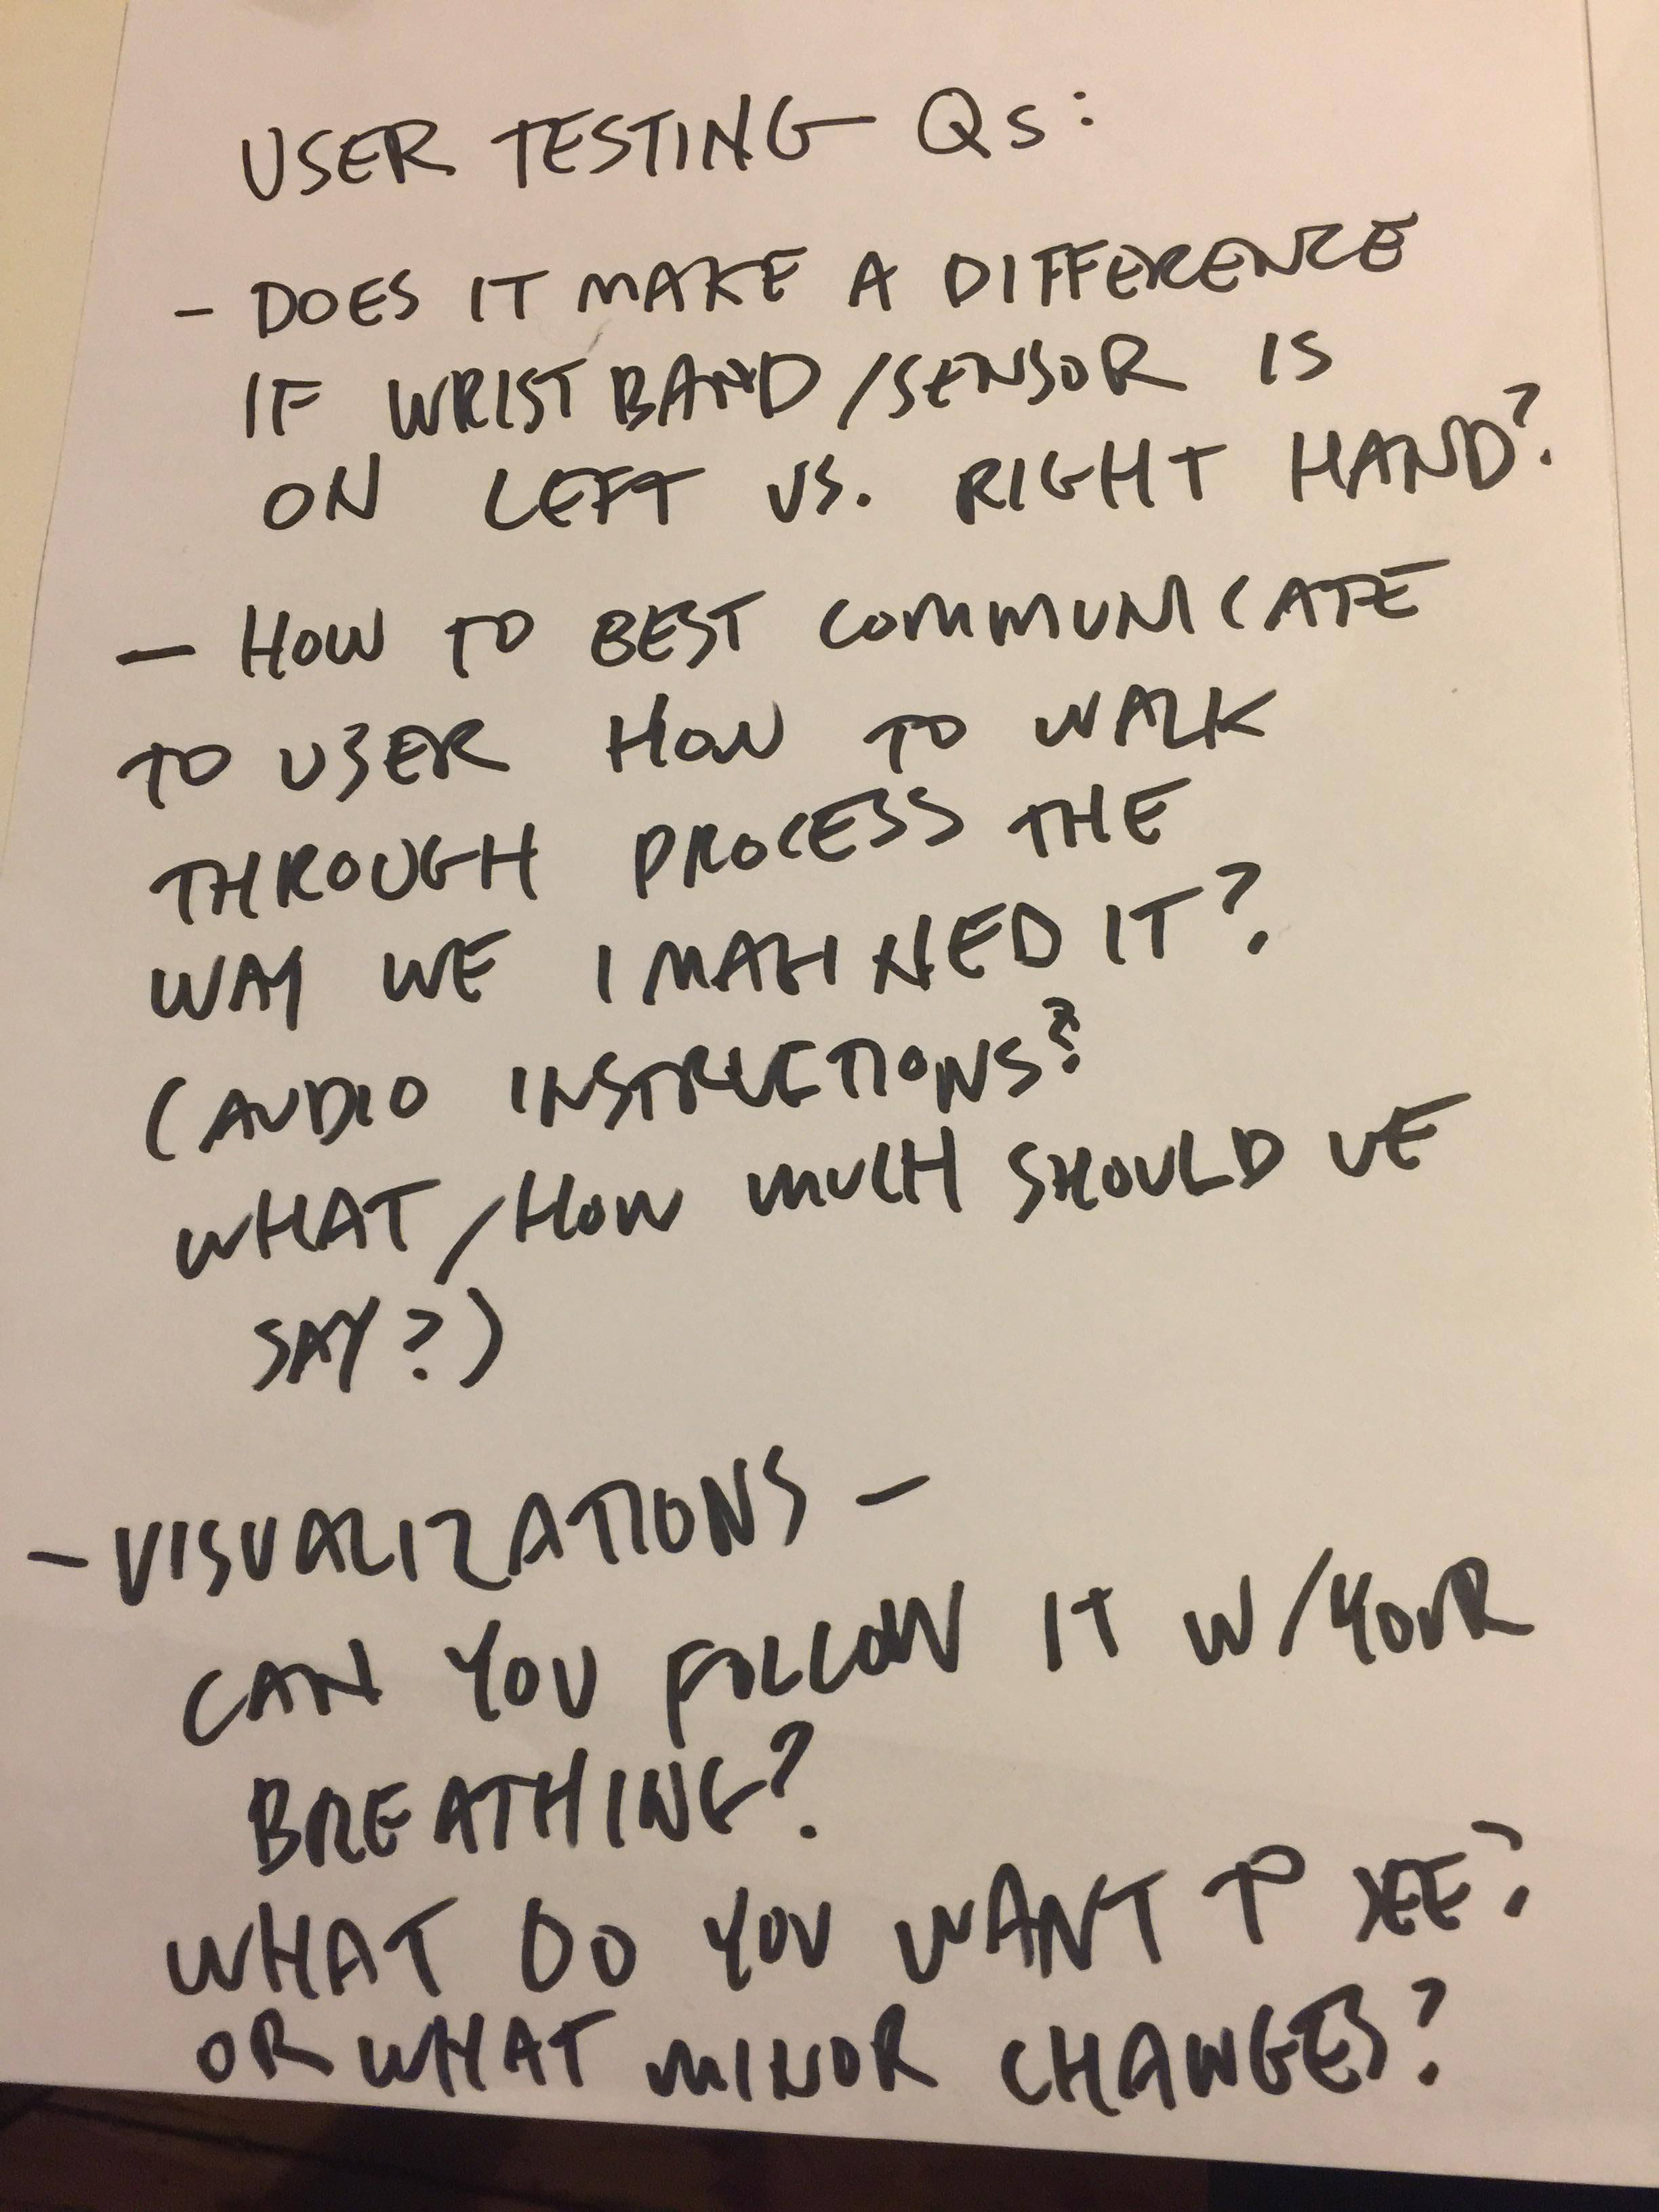 USER TESTING Qs:
- DOES IT MAKE A DIFFERENCE
IF WRISTBAND/SENSOR IS
ON LEFT VS. RIGHT HAND?
- HOW TO BEST COMMUNICATE
TO USER HOW TO WALK
THROUGH PROCESS THE
WAY WE IMAGINED IT?
(AUDIO INSTRUCTIONS?
WHAT/HOW MUCH SHOULD WE
SAY?)
- VISUALIZATIONS -
CAN YOU FOLLOW IT W/YOUR
BREATHING?
WHAT DO YOU WANT TO SEE?
OR WHAT MINOR CHANGES?